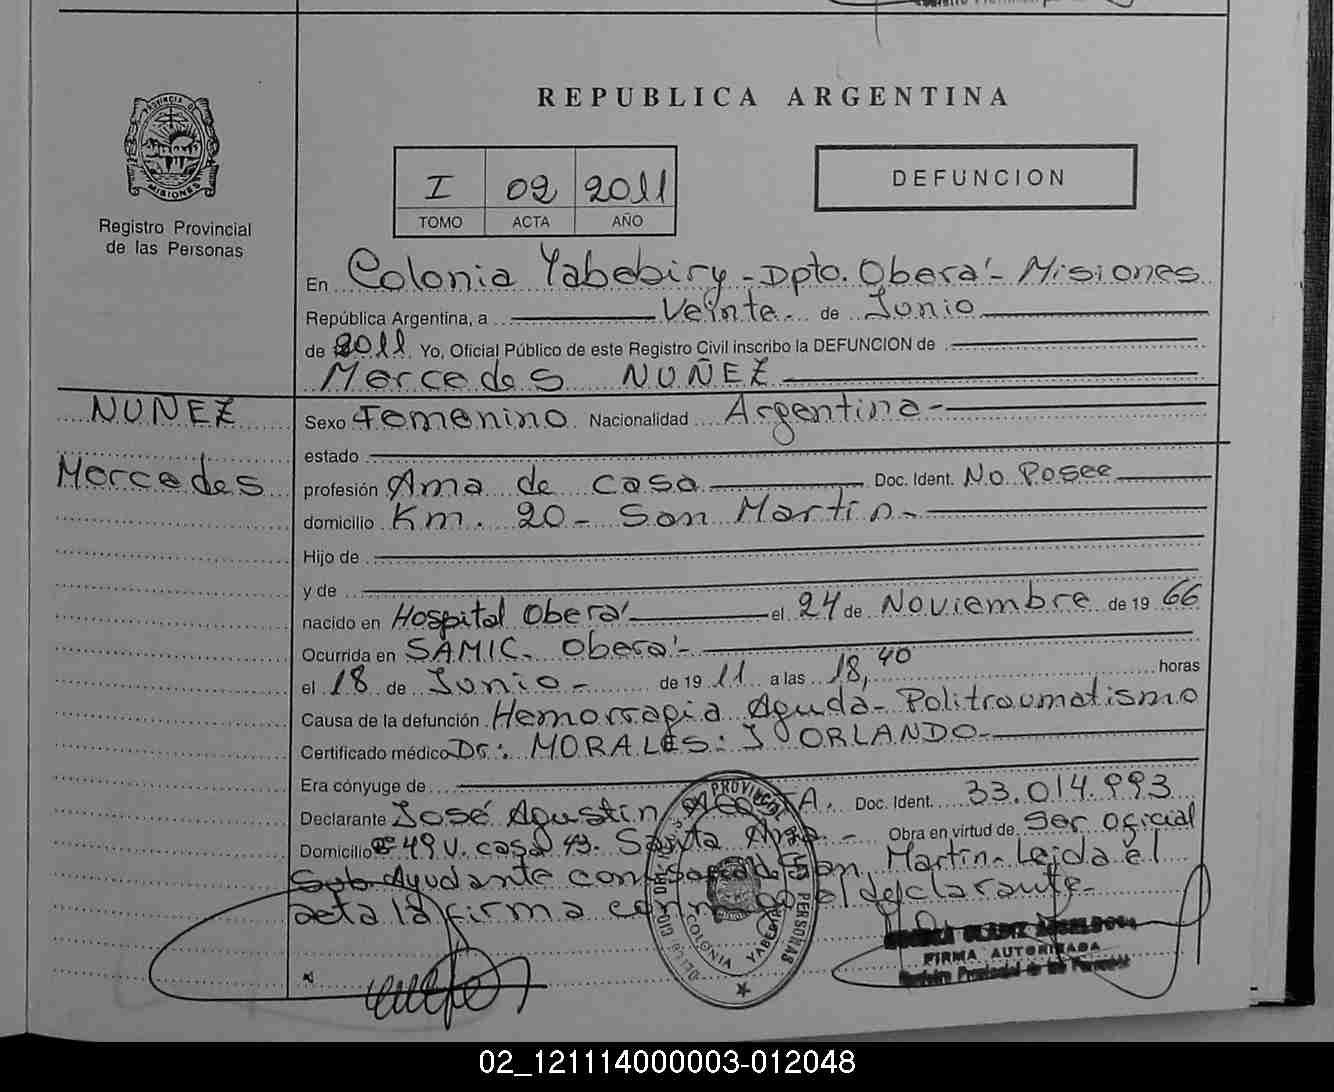 REPUBLICA ARGENTINA
PROVINCIA DE MISIONES
Registro Provincial
de las Personas
I 02 2011
TOMO ACTA AÑO
DEFUNCION
En Colonia Yabebiry - Dpto. Oberá - Misiones
República Argentina, a Veinte de Junio
de 2011 Yo, Oficial Público de este Registro Civil inscribo la DEFUNCION de
Mercedes NUÑEZ
NUÑEZ
Mercedes
Sexo Femenino Nacionalidad Argentina-
estado
profesión Ama de casa Doc. Ident. No Posee
domicilio Km. 20 - San Martín -
Hijo de
y de
nacido en Hospital Oberá el 24 de Noviembre de 1966
Ocurrida en SAMIC. Oberá -
el 18 de Junio - de 19 11 a las 18,40 horas
Causa de la defunción Hemorragia Aguda - Politraumatismo
Certificado médico Dr.: MORALES: J ORLANDO-
Era cónyuge de
Declarante José Agustin Doc. Ident. 33.014.993
Domicilio 49 v. casa 43. Santa Ana - Obra en virtud de Ser oficial
Sub-Ayudante San Martin - Leida el
acta la firma el declarante-
COLONIA YABEBIRY
FIRMA AUTORIZADA
Registro Provincial de las Personas
02_121114000003-012048